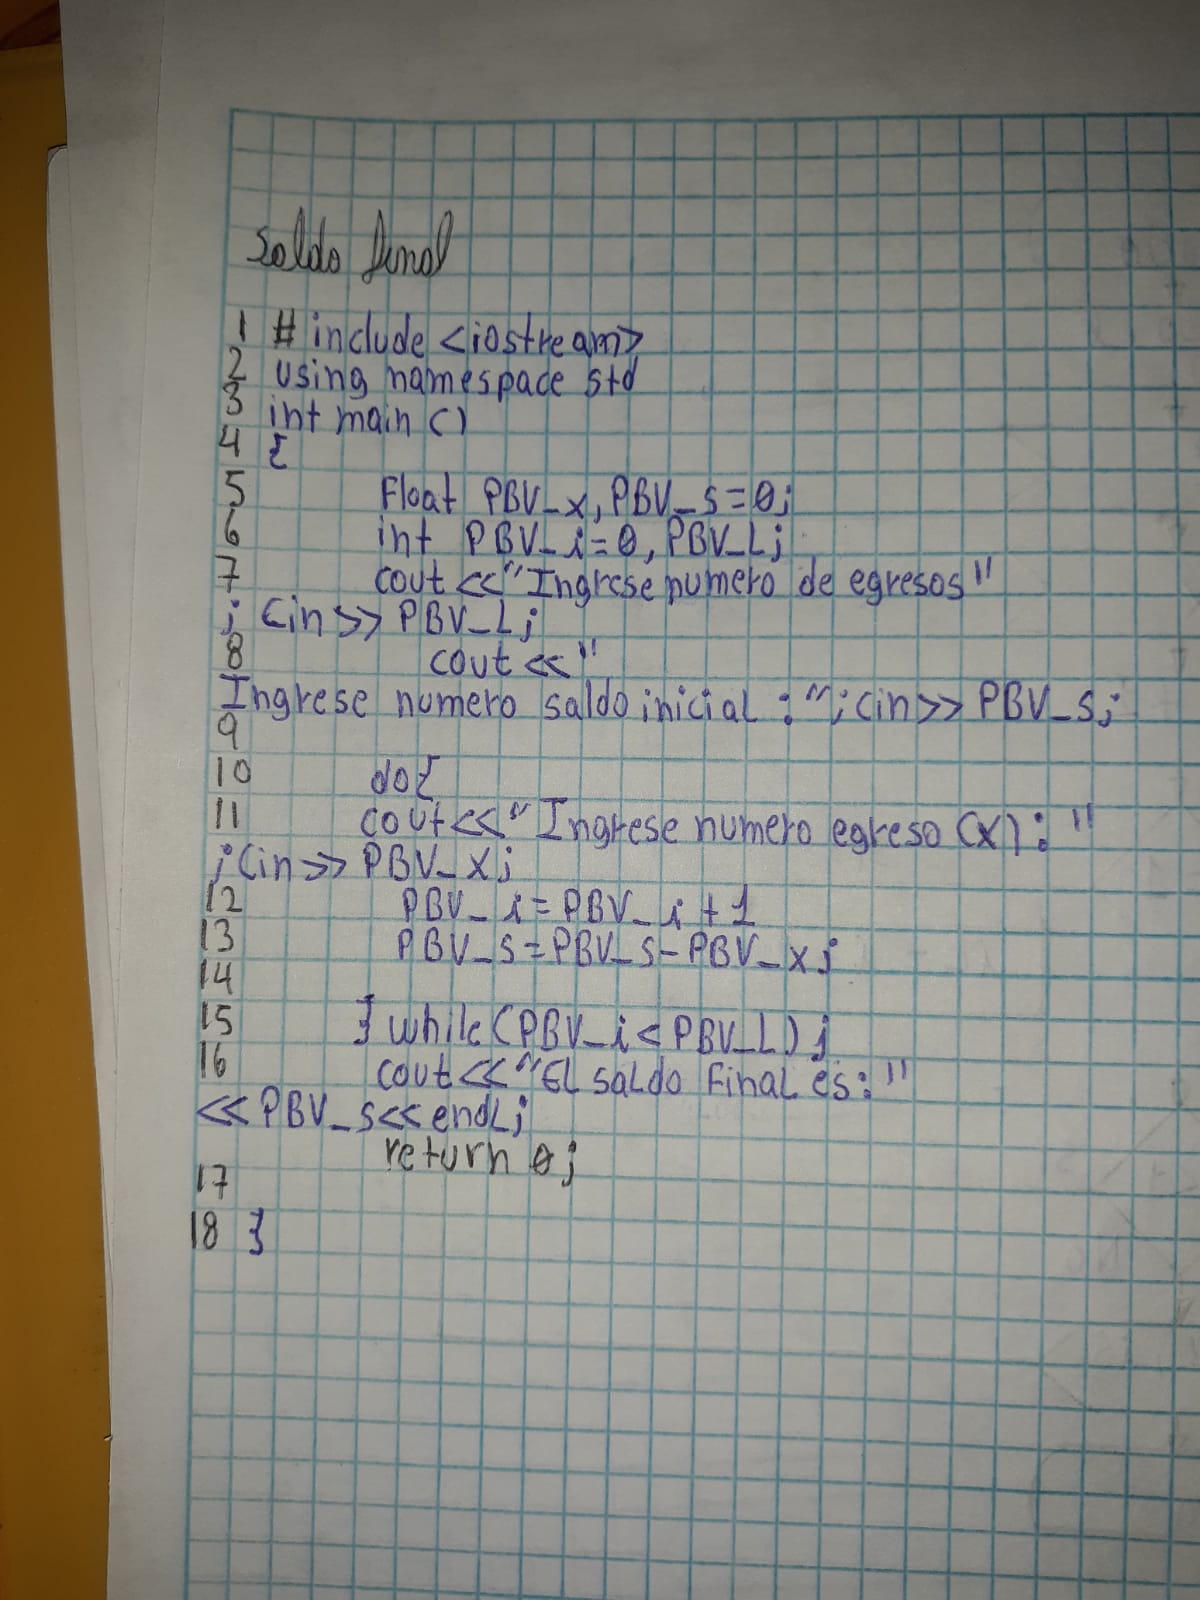 Saldo final
1 # include <iostream>
2 using namespace std
3 int main ()
4 {
5 Float PBV_x, PBV_s=0;
6 int PBV_i=0, PBV_L;
7 cout <<"Ingrese numero de egresos"
; cin >> PBV_L;
8 cout <<"
Ingrese numero saldo inicial : "; cin>> PBV_s;
9
10 do{
11 cout<<"Ingrese numero egreso (x): "
; cin >> PBV_x;
12 PBV_i=PBV_i+1
13 PBV_s=PBV_s-PBV_x;
14
15 } while(PBV_i<PBV_L);
16 cout<<"El saldo Final es: "
<<PBV_s<<endL;
return 0;
17
18 }